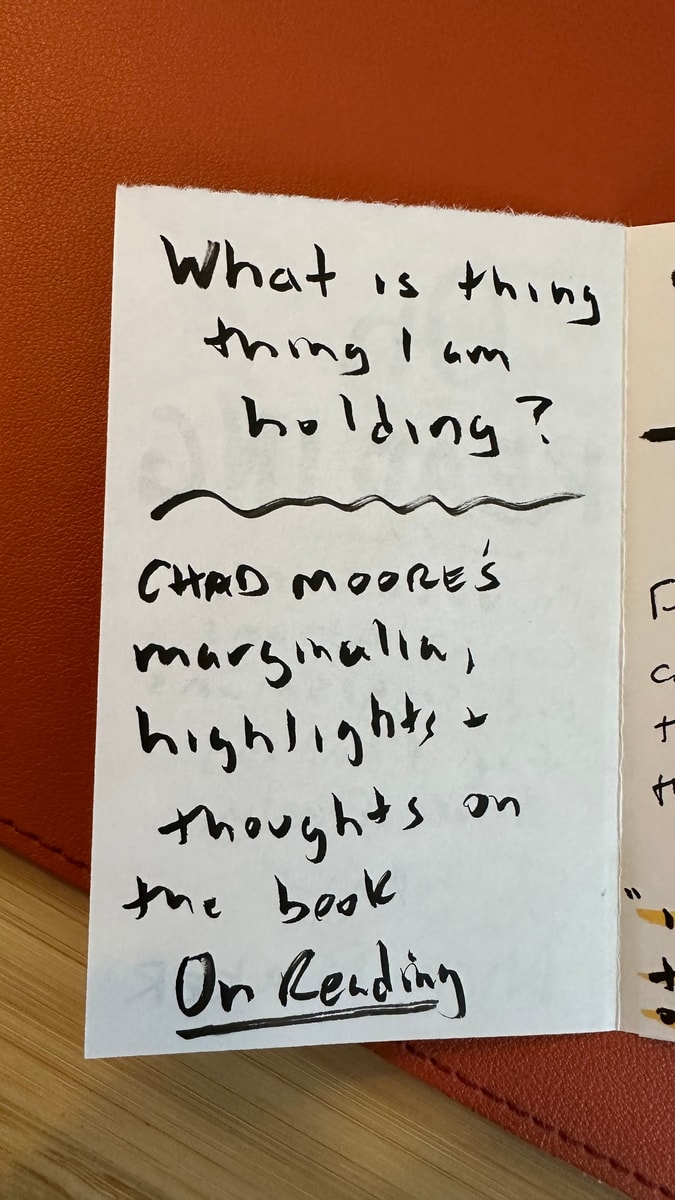 What is thing
thing I am
holding?
CHAD MOORE'S
marginalia,
highlights +
thoughts on
the book
On Reading